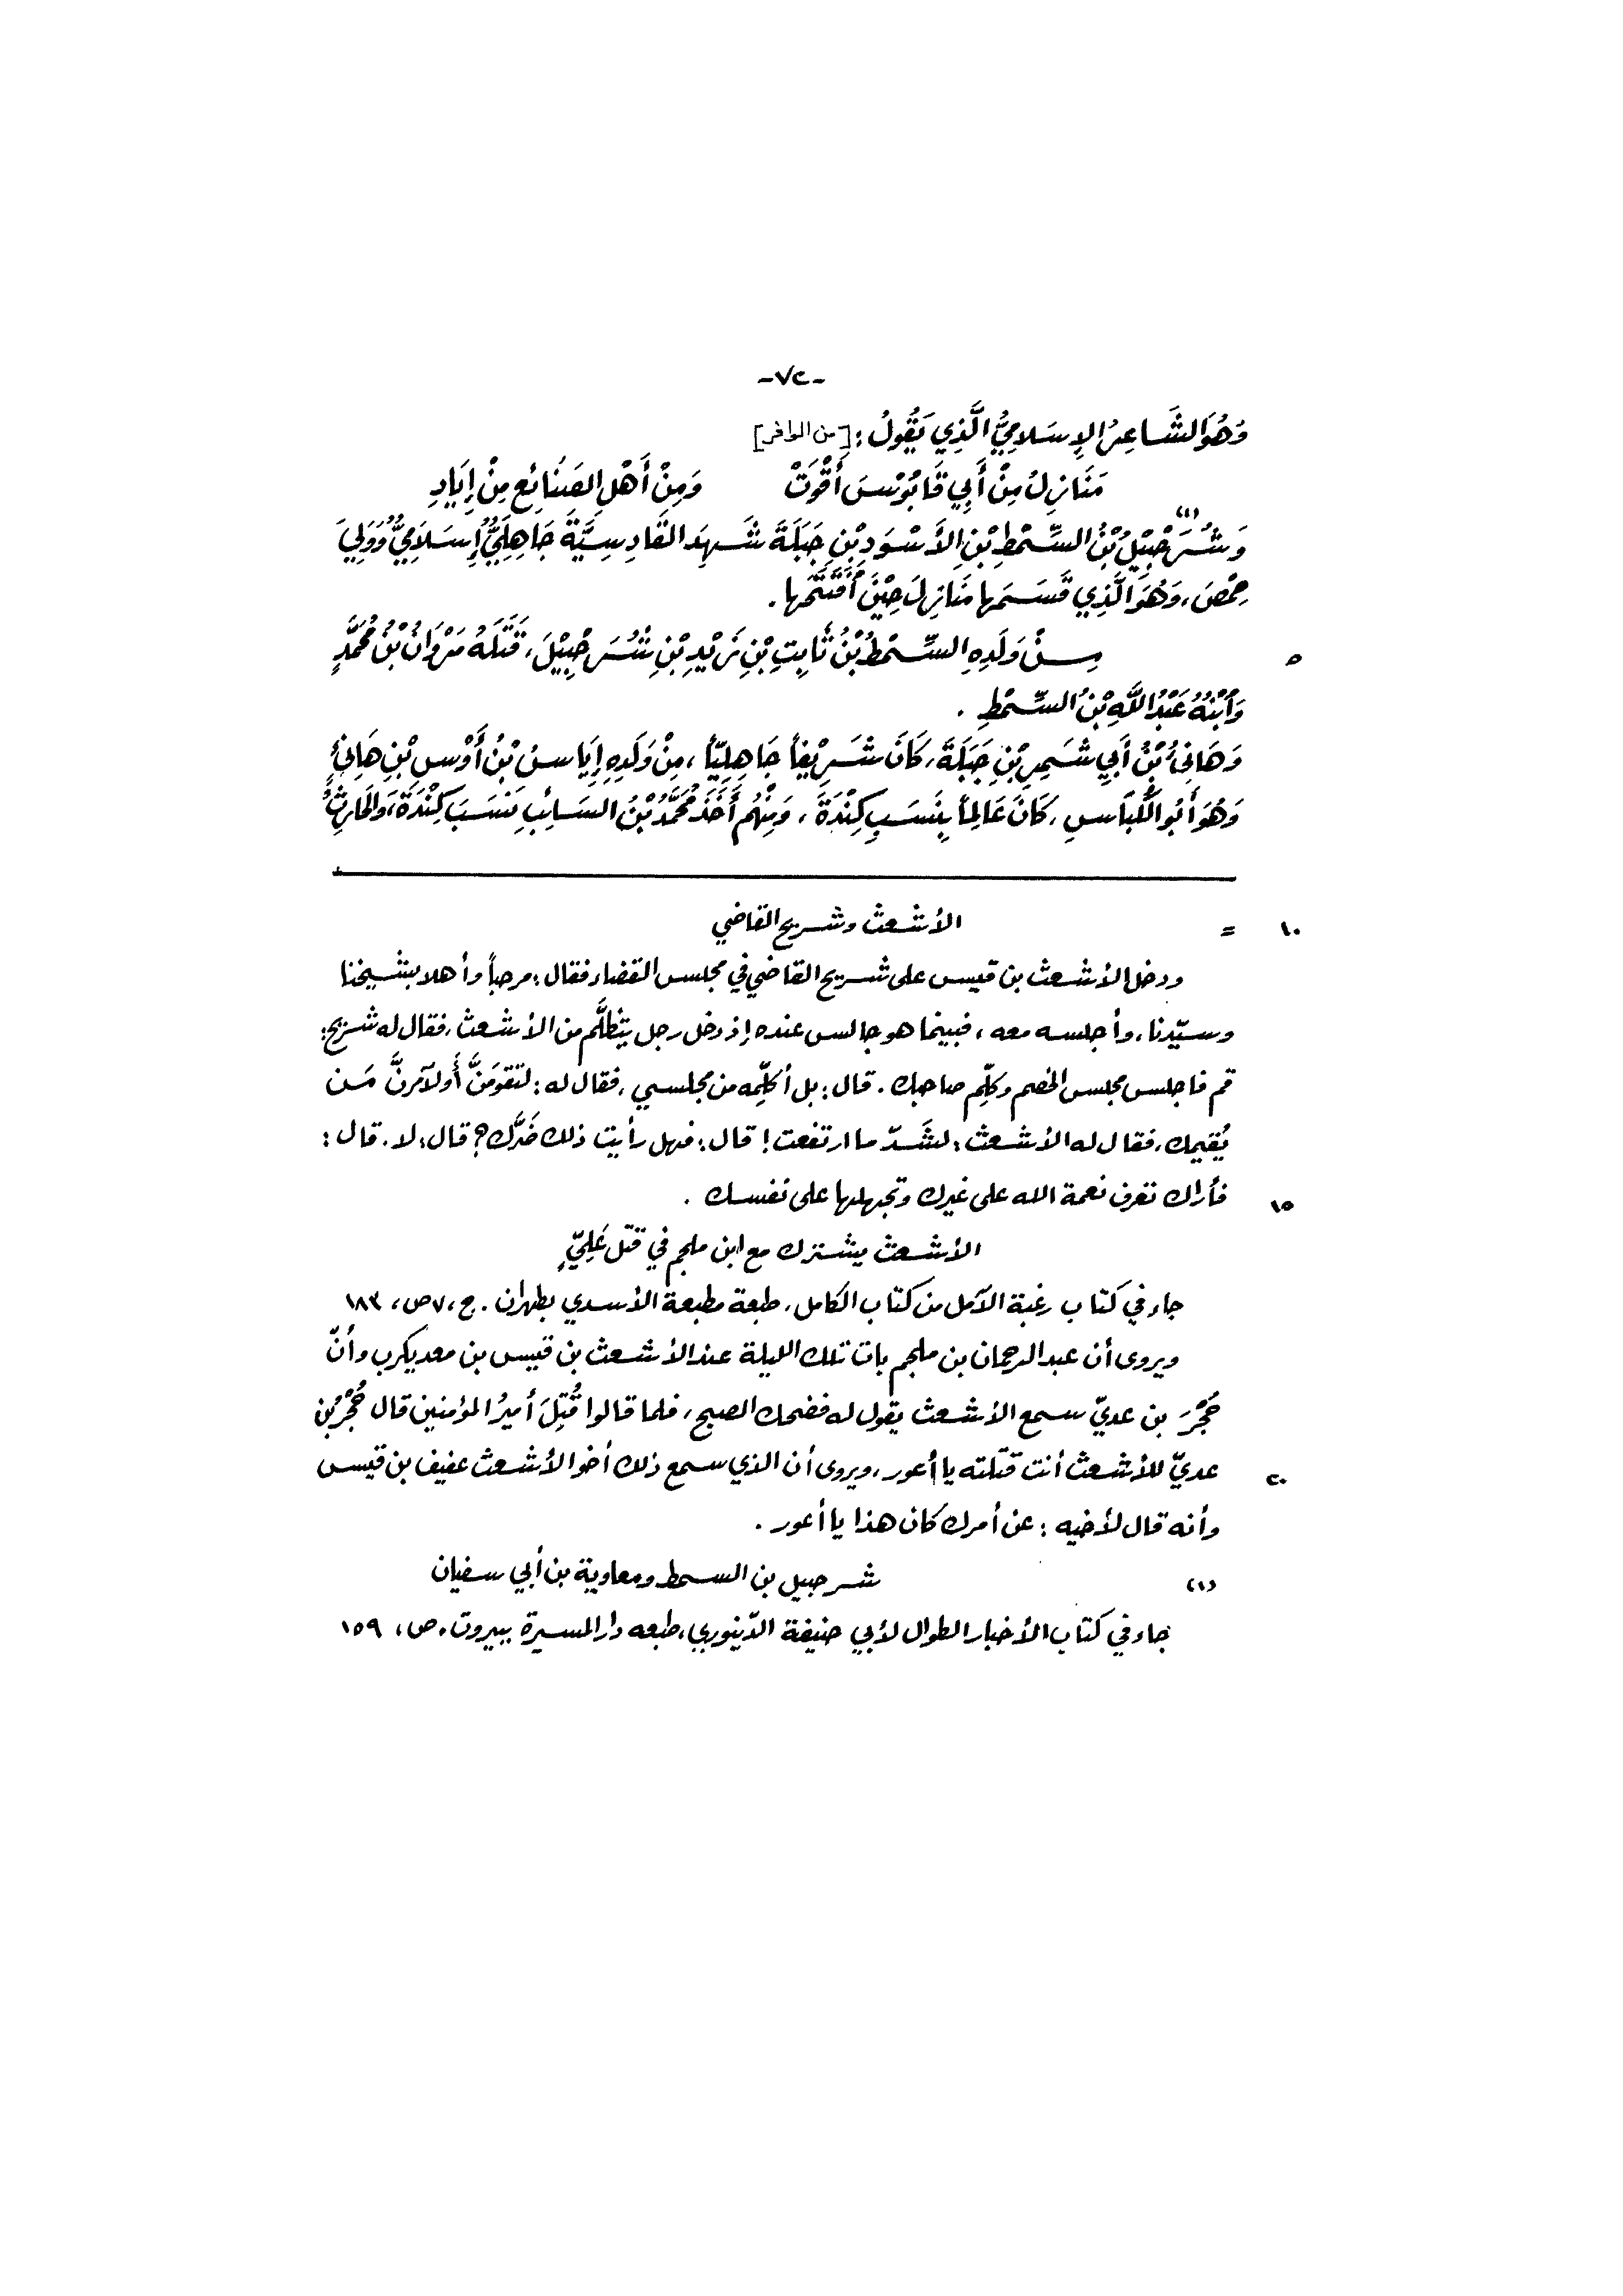 -٧٢-
وَهُوَ الشَّاعِرُ الإِسَلامِيُّ الَّذِي يَقُولُ: [من الوافر]
مَنَازِلُ مِنْ أَبِي قَابُوْسَ أَقْوَتْ وَمِنْ أَهْلِ الصَنَائِعِ مِنْ إِيَادِ
(١)
وَشُرَحْبِيْلُ بْنُ السِّمْطِ بْنِ الأَسْوَدِ بْنِ جَبَلَةَ شَهِدَ القَادِسِيَّةَ جَاهِلِيٌّ إِسَلَامِيٌّ وَوَلِيَ
حِمْصَ، وَهُوَ الَّذِي قَسَمَها مَنَازِلَ حِيْنَ اُفْتَتَحَها.
٥ مِنْ وَلَدِهِ السِّمْطُ بْنُ ثَابِتِ بْنِ يَزِيْدِ بْنِ شُرَحْبِيْلَ، قَتَلَهُ مَرْوَانُ بْنُ مُحَمَّدٍ
وَاُبْنُهُ عَبْدُ اللَّهِ بْنُ السِّمْطِ.
وَهَانِئُ بْنُ أَبِي شَمِرِ بْنِ جَبَلَةَ، كَانَ شَرِيْفاً جَاهِلِيّاً، مِنْ وَلَدِهِ إِيَاسُ بْنُ أَوْسِ بْنِ هَانِئٍ
وَهُوَ أَبُو الكَبَّاسِ، كَانَ عَالِماً بِنَسَبِ كِنْدَةَ، وَمِنْهُم أَخَذَ مُحَمَّدُ بْنُ السَائِبِ نَسَبَ كِنْدَةَ، وَالحَارِثُ
١٠ = الأشعث وشريح القاضي
ودخل الأشعث بن قيس على شريح القاضي في مجلس القضاء فقال: مرحباً وأهلا بشيخنا
وسيّدنا، وأجلسه معه، فبينما هو جالس عنده إذ دخل رجل يتظلَّم من الأشعث، فقال له شريح:
قم فاجلس مجلس الخصم وكلِّم صاحبك. قال: بل أكلِّمه من مجلسي، فقال له: لتقومَنَّ أولآمرنَّ مَن
يُقيمك، فقال له الأشعث: لشَدّ ما ارتفعت! قال: فهل رأيت ذلك ضَرَّك؟ قال: لا. قال:
١٥ فأراك تعرف نعمة الله على غيرك وتجهلها على نفسك.
الأشعث يشترك مع ابن ملجم في قتل عَلِيّ
جاء في كتاب رغبة الآمل من كتاب الكامل، طبعة مطبعة الأسدي بطهران. ج، ٧ ص، ١٨٣
ويروى أن عبد الرحمان بن ملجم بات تلك الليلة عند الأشعث بن قيس بن معديكرب وأنّ
حُجْرَ بن عديّ سمع الأشعث يقول له فضحك الصبح، فلما قالوا قُتِلَ أميرُ المؤمنين قال حُجْرُ بن
٢٠ عديّ للأشعث أنت قتلته يا أعور، ويروى أن الذي سمع ذلك أخو الأشعث عفيف بن قيس
وأنه قال لأخيه: عن أمرك كان هذا يا أعور.
(١) شرحبيل بن السمط ومعاوية بن أبي سفيان
جاء في كتاب الأخبار الطوال لأبي حنيفة الدّينوري، طبعه دار المسيرة ببيروت. ص، ١٥٩